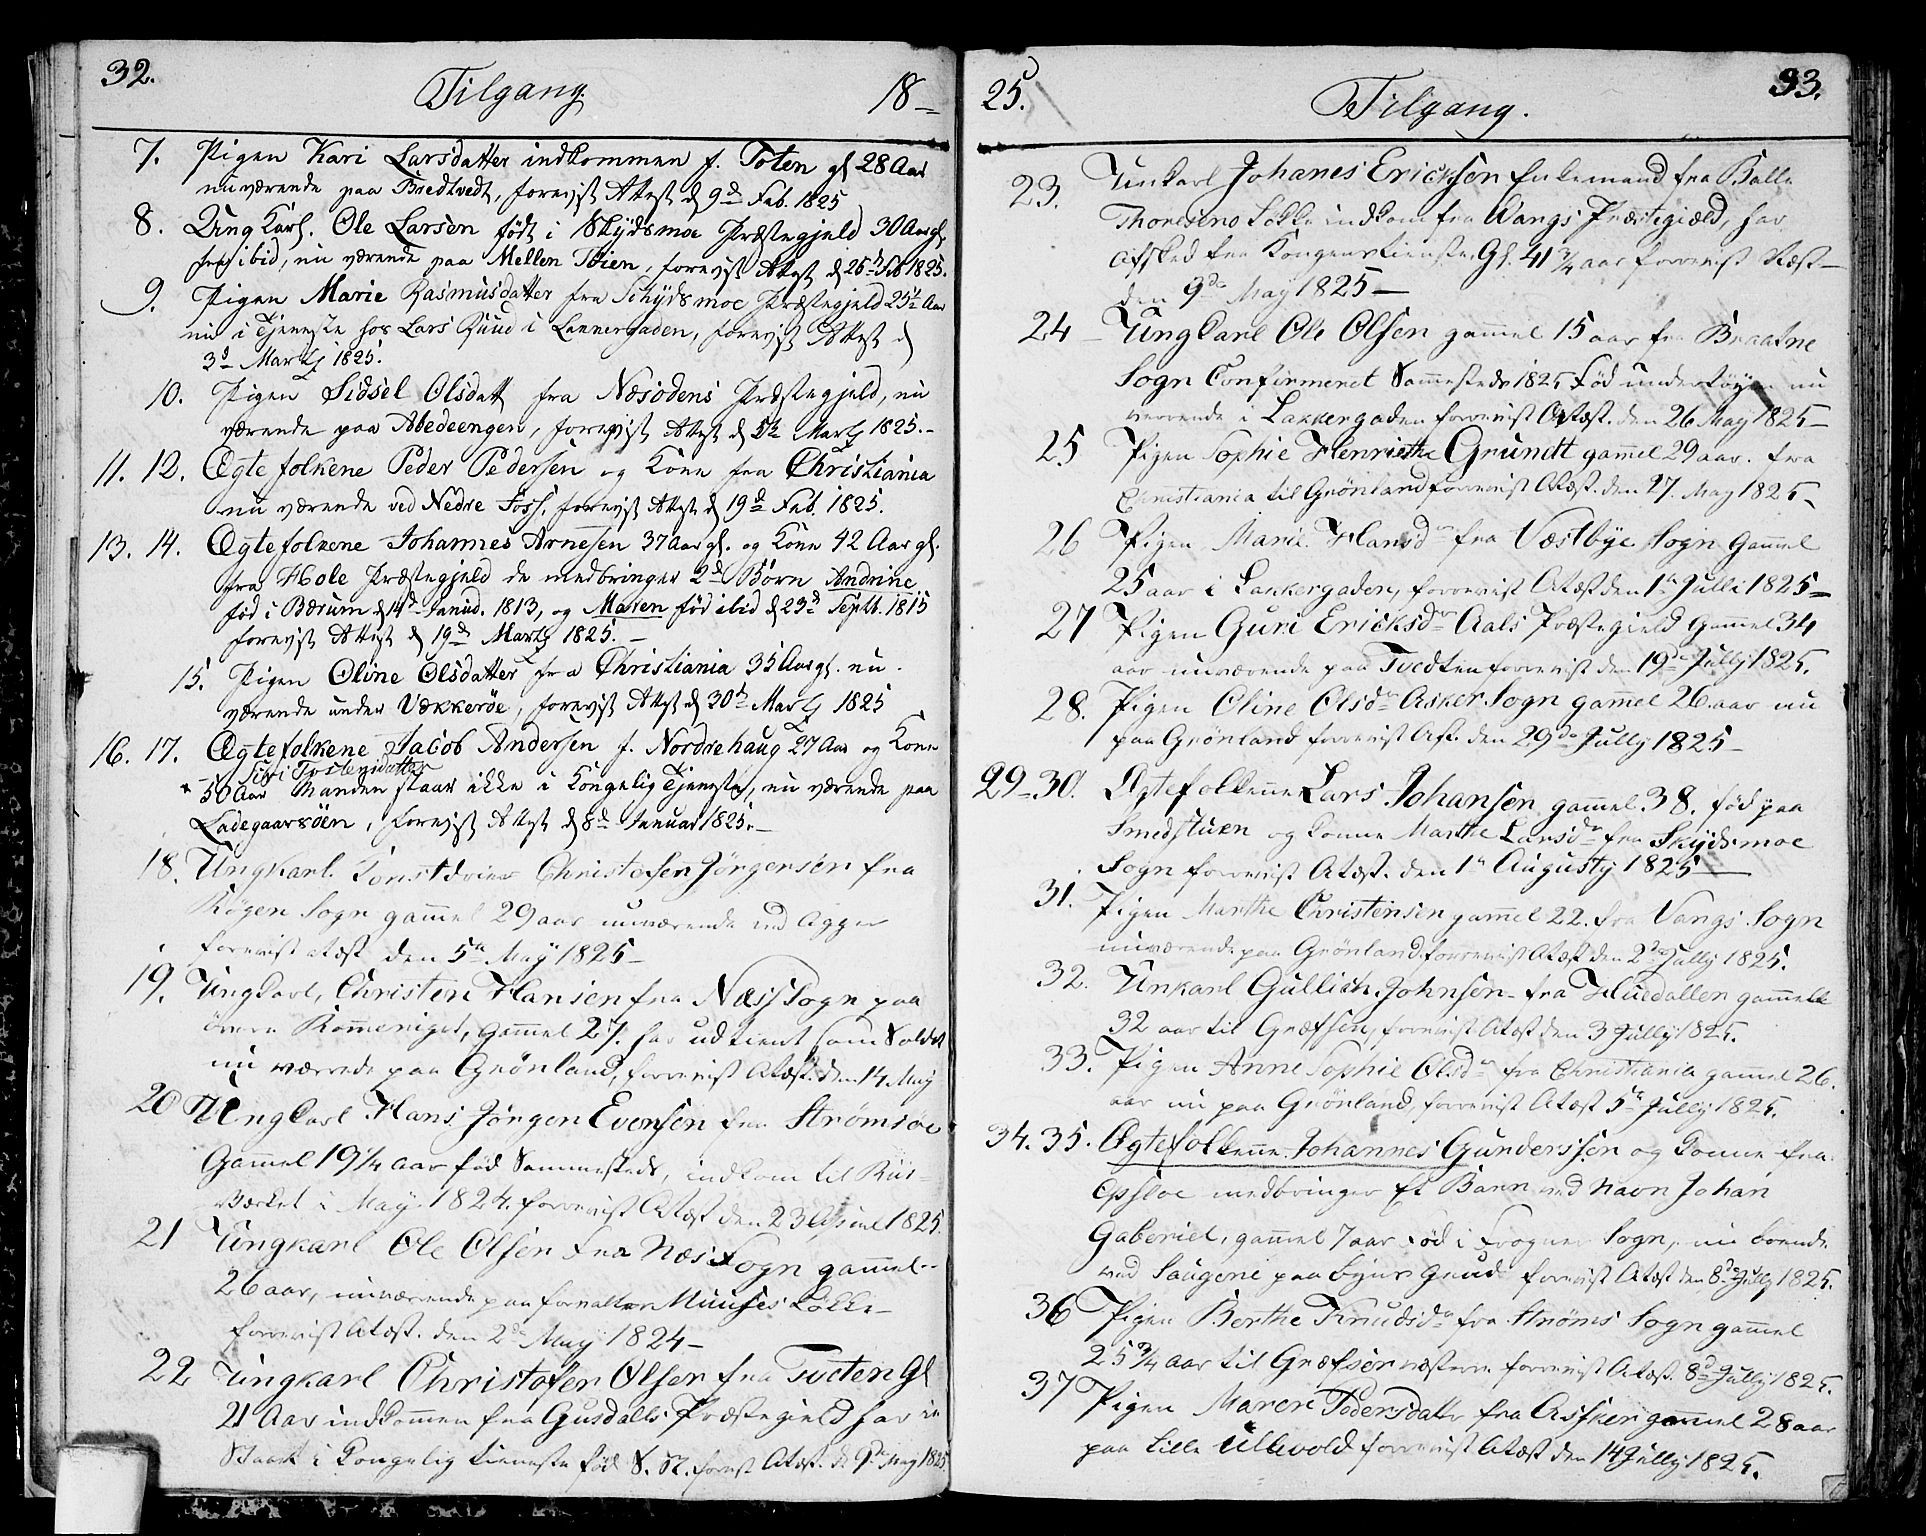 32.
Tilgang.
18-
7. Pigen Kari Larsdatter indkommen f. Toten gl 28 Aar
nuværende paa Bredtvedt, forevist Attest d 9de Feb. 1825
8. Ung Karl. Ole Larsen født i Skydsmoe Præstegjeld 30 Aar gl.
ibid, nu værende paa Mellen Töien, forevist Attest d 26de Feb 1825.
9. Pigen Marie Rasmusdatter fra Schydsmoe Præstegjeld 25½ Aar
nu i Tjeneste hos Lars Ruud i Lakkergaden, forevist Attest d
3d Martz 1825.
10. Pigen Sidsel Olsdatt fra Næsodens Præstegjeld, nu
værende paa Abedeengen, forevist Attest d 5te Martz 1825.-
11. 12. Ægtefolkene Peder Pedersen og Kone fra Christiania
nu værende ved Nedre Foss, forevist Attest d 19de Feb. 1825.
13. 14. Ægtefolkene Johannes Arnesen 37 Aar gl. og Kone 42 Aar gl.
fra Hole Præstegjeld de medbringer 2de Børn Andrine
fød i Bærum d 14de Januar. 1813, og Maren fød ibid d 23de Septb. 1815
forevist Attest d 19de Martz 1825.-
15. Pigen Oline Olsdatter fra Christiania 35 Aar gl. nu
værende under Vækkerøe, forevist Attest d 30te Martz 1825
16. 17. Ægtefolkene Jacob Andersen f. Nordrehaug 27 Aar og Kone
Siri Tostensdatter
50 Aar Manden staar ikke i Kongelig Tjeneste, nu værende paa
Ladegaarsöen, forevist Attest d 8de Januar 1825.-
18. Ungkarl. Christofer Jörgensen fra
Røgen Sogn gammel 29 aar nuværende ved Agger
forevist Atæst den 5te May 1825-
19. Ungkarl, Christen Hansen fra Næss Sogn paa
övere Romeriget, gammel 27. har udtient som Soldat
nu værende paa Grönland, forevist Atæst. den 14 May
20 Ungkarl Hans Jörgen Evensen fra Strömsöe
Gammel 19¼ aar fød Sammesteds, indkom til
Værket i May 1824. forevist Atæst den 23 April 1825.
21 Ungkarl Ole Olsen fra Næs Sogn gammel-
26 aar, nuværende paa forvalter Muuses Løkke-
forevist Atæst. den 2de May 1824-
22 Ungkarl Christofer Olsen fra Tveten Gl
21 Aar indkommen fra Gusdalls Præstegield har ei
Staaet i Kongelig tieneste fød S. St. forevist Atæst. d 9de May 1825
25.
Tilgang.
33.
23. Unkarl Johanes Ericksen Enkemand fra Balle
Thoresens Løkke indkom fra Vangs Præstegiæld, har
Afsked fra Kongenstieneste. Gl. 41¾ aar forevist Atæst-
den 9de May 1825-
24 Ungkarl Ole Olsen gamel 15 aar fra Braatne
Sogn Confirmeret Sammesteds 1825 Fød under Töyen nu
værende i Lakkergaden forevist Atæst. den 26 May 1825-
25 Pigen Sophie Henriethe Grundt gamel 29 aar. fra
Christiania til Grönland forevist Atæst. den 27. May 1825-
26 Pigen Marie. Hansdr fra Væstbye Sogn Gammel
25 aar i Lakkergaden, forevist Atæst den 1te Julli 1825-
27 Pigen Guri Ericksdr Aals Præstegield Gammel 34
aar nuværende paa Tvedten forevist den 19de Jully 1825.
28. Pigen Oline Olsdr Asker Sogn gamel 26 aar nu
paa Grönland forevist Ast. den 29de Jully 1825-
29-30. Ægtefolkenne Lars Johansen gammel 38. fød paa
Smedstuen og konne Marthe Larsdr fra Skydsmoe
Sogn forevist Atæst. den 1te Augusty 1825-
31. Pigen Marthe Christensen gamel 22. fra Vangs Sogn
nuværende paa Grönland forevist Atæst den 2de Jully 1825.
32. Unkarl Gullich Johnsen- fra Huedallen gammell
32 aar til Græfsen, forevist Atæst den 3 Jully 1825.
33. Pigen Anne Sophie Olsdr fra Christiania gammel 26.
aar nu paa Grönland, forevist Atæst 5te Jully 1825.
34. 35. Ægtefolkenne Johannes Gunderssen og konne fra
Opsloe medbringer Et Barn ved Navn Johan
Gaberiel, gammel 7 aar fød i Frogner Sogn, nu boende
ved Saugene paa byens Grund forevist Atæst den 8de Jully 1825.
36 Pigen Berthe Knudsdr fra Ströms Sogn gammel
25¾ aar til Græfsen forevist Atæst. 8de Jully 1825.
37 Pigen Maren Pedersdatter fra Assker gammel 28 aar
paa Lille Ullevold forevist Atæst den 14 Jully 1825.